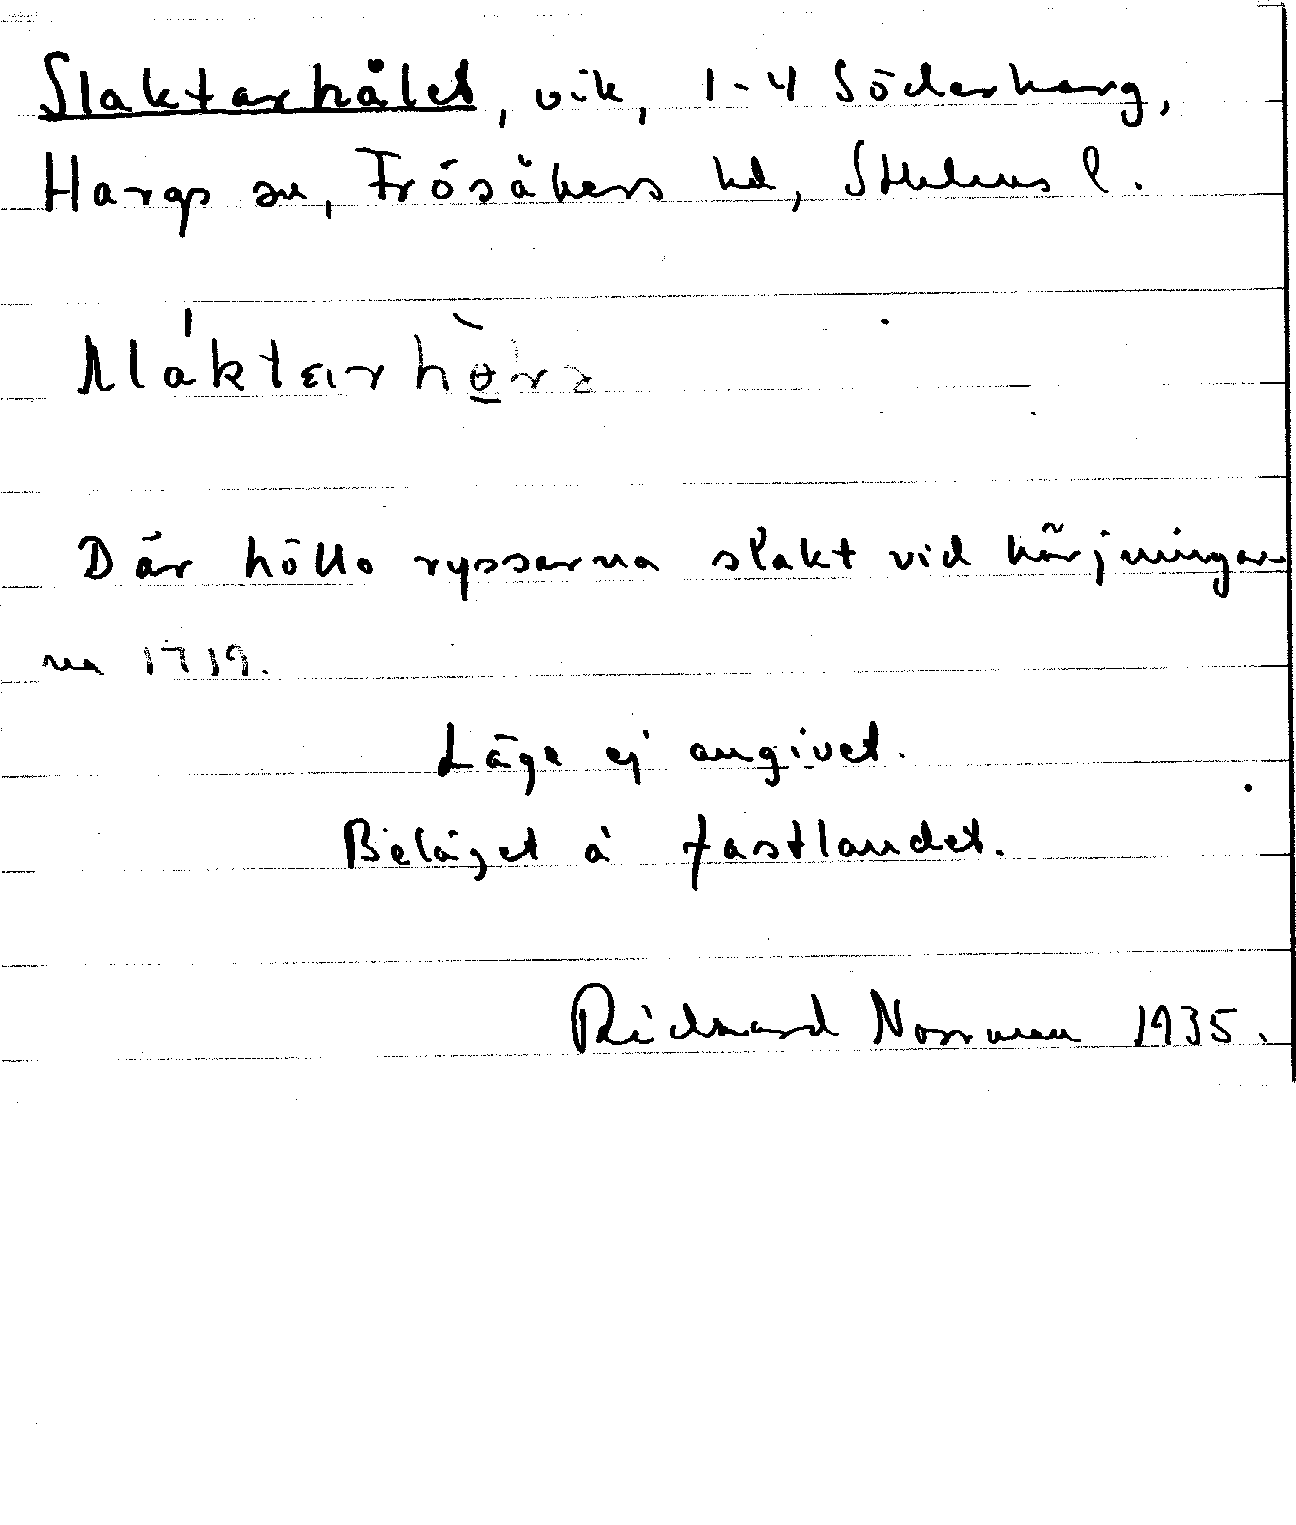 Slaktarhålet, vik, 1-4 Söderharg,
Hargs sn, Frösåkers hd, Sthlms l.
Där höllo ryssarna slakt vid härjningar-
na 1719.
Läge ej angivet.
Beläget å fastlandet.
Richard Norrman 1935.